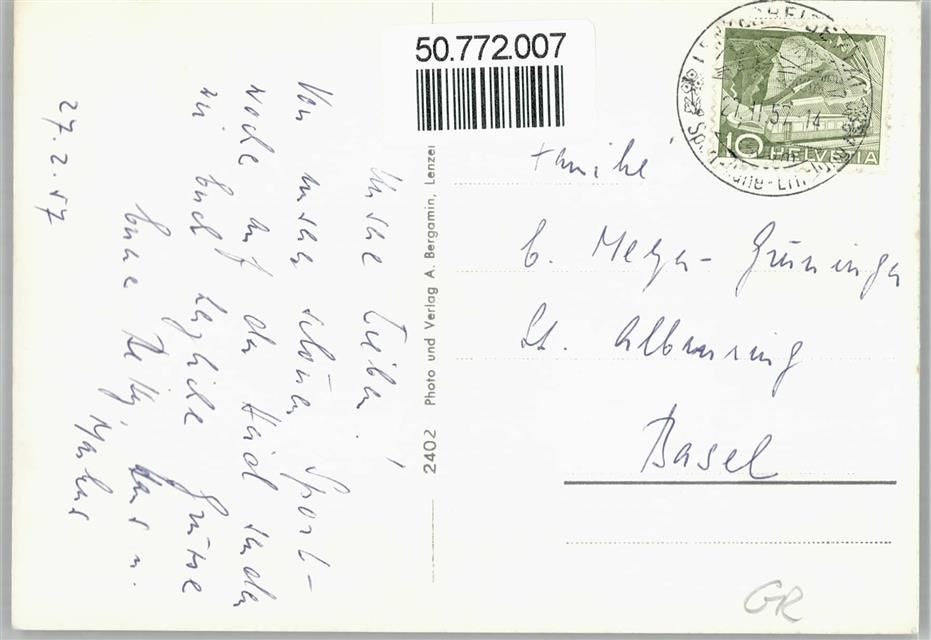 50.772.007
27. 2. 57
Unsere Lieben!
Von unserer schönen Sport-
woche auf der Haid senden
wir Euch herzliche Grüsse
Eure Hetty, Hans u.
Markus
2402 Photo und Verlag A. Bergamin, Lenzer
10 HELVETIA
Familie
E. Meyer-Grüninger
St. Albanring
Basel
GR